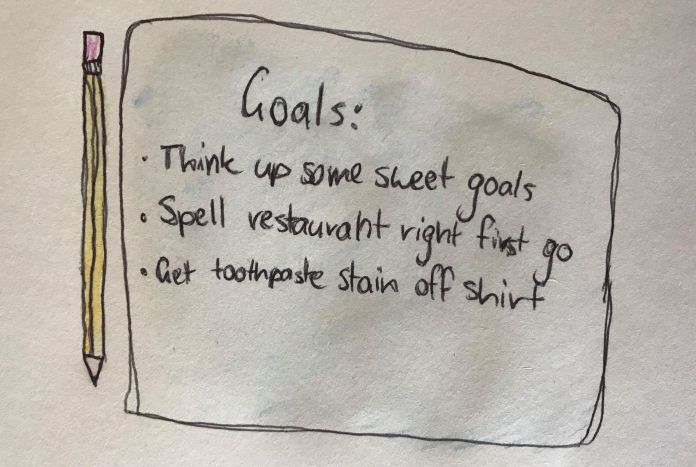 Goals:
• Think up some sweet goals
• Spell restaurant right first go
• Get toothpaste stain off shirt